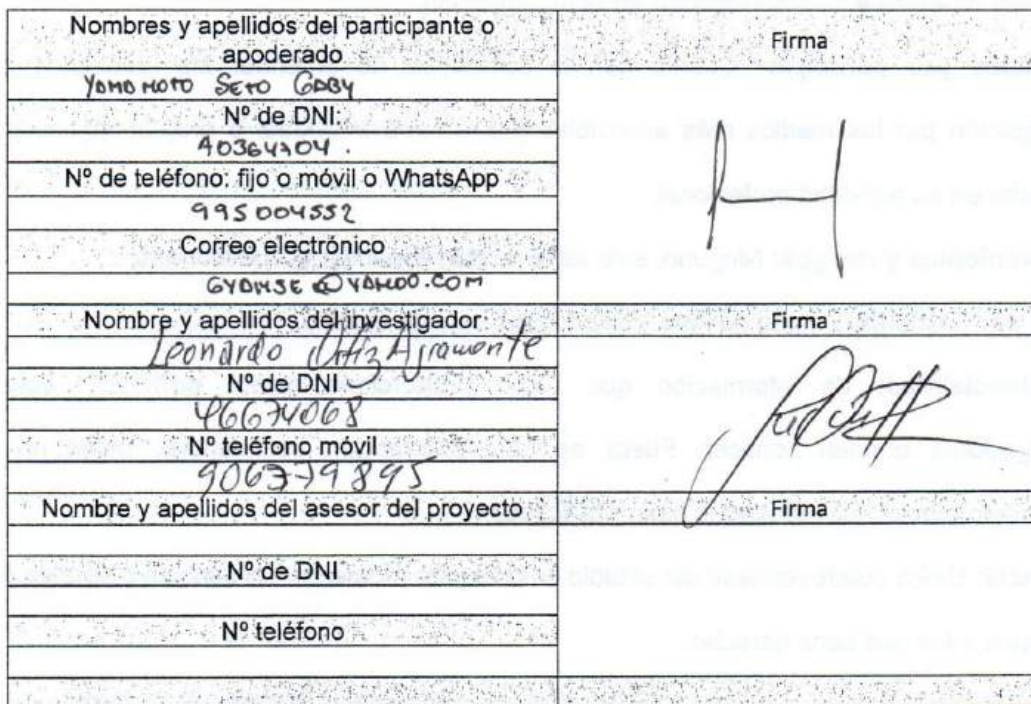 Nombres y apellidos del participante o
apoderado
Firma
YAMAMOTO SETO GABY
Nº de DNI:
40364704.
Nº de teléfono: fijo o móvil o WhatsApp
995004552
Correo electrónico
GYAMSE@YAHOO.COM
Nombre y apellidos del investigador
Firma
Leonardo Ortiz Agramonte
Nº de DNI
46674068
Nº teléfono móvil
906379895
Nombre y apellidos del asesor del proyecto
Firma
Nº de DNI
Nº teléfono